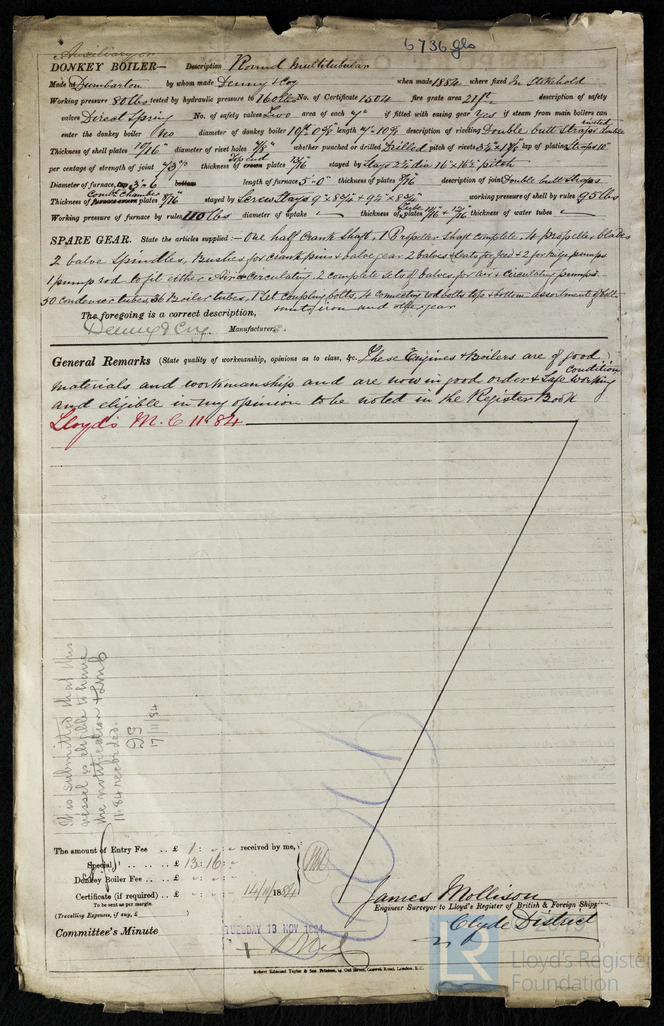 6736 gls
Auxiliary or
DONKEY BOILER— Description Round Multitubular
Made at Dumbarton by whom made Denny & Coy when made 1884 where fixed In Stokehold
Working pressure 80 lbs tested by hydraulic pressure to 160 lbs No. of Certificate 1504 fire grate area 21 ft description of safety
valves Direct Spring No. of safety valves Two area of each 7" if fitted with easing gear Yes if steam from main boilers can
enter the donkey boiler No diameter of donkey boiler length description of riveting Double butt straps double
riveted
Thickness of shell plates 10/16 diameter of rivet holes 7/8 whether punched or drilled Drilled pitch of rivets lap of plating Straps 10"
per centage of strength of joint thickness of crown plates stayed by Stays
Top end
Diameter of furnace, top 3'-6 bottom length of furnace 5'-0" thickness of plates 9/16 description of joint Double butt Straps
Comb. Chamber
Thickness of furnace crown plates 9/16 stayed by Screw Stays working pressure of shell by rules 95 lbs
Working pressure of furnace by rules 110 lbs diameter of uptake thickness of plates thickness of water tubes
SPARE GEAR. State the articles supplied:— One half Crank Shaft, 1 Propeller shaft complete, 4 propeller blades
2 valve spindles, Bushes for crank pins & valve gear 2 valves & seats for feed & 2 for bilge pumps
1 pump rod to fit either Air or Circulating 2 complete sets of valves for air & circulating pumps
50 condenser tubes, 36 Boiler tubes, 1 set coupling bolts, 4 connecting rod bolts top & bottom assortment of bolts
nuts iron and other gear
The foregoing is a correct description,
Denny & Coy Manufacturers.
General Remarks (State quality of workmanship, opinions as to class, &c. These Engines & Boilers are of good
materials and workmanship and are now in good order & Safe Working
Condition
and eligible in my opinion to be noted in the Register Book
Lloyd's M. C 11.84
It is submitted that this
vessel is eligible to have
the notification + LMC
11.84 recorded.
17/11/84
The amount of Entry Fee .. £ 1 : - : - received by me,
Special .. £ 13 : 16 : -
Donkey Boiler Fee .. £ - : - : -
Certificate (if required) .. £ - : - : - 14/11/1884
To be sent as per margin.
(Travelling Expenses, if any, £ )
James Mollison
Engineer Surveyor to Lloyd's Register of British & Foreign Shipping
Clyde District
Committee's Minute
TUESDAY 18 NOV 1884
Robert Edmund Taylor & Son, Printers, 19, Old Street, Goswell Road, London, E.C.
LR
Lloyd's Register
Foundation